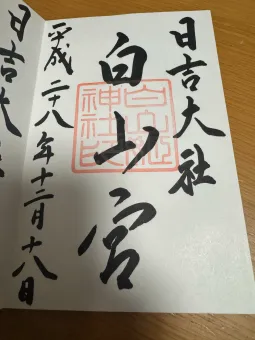 日吉大社
白山宮
平成二十八年十二月十八日
日吉大